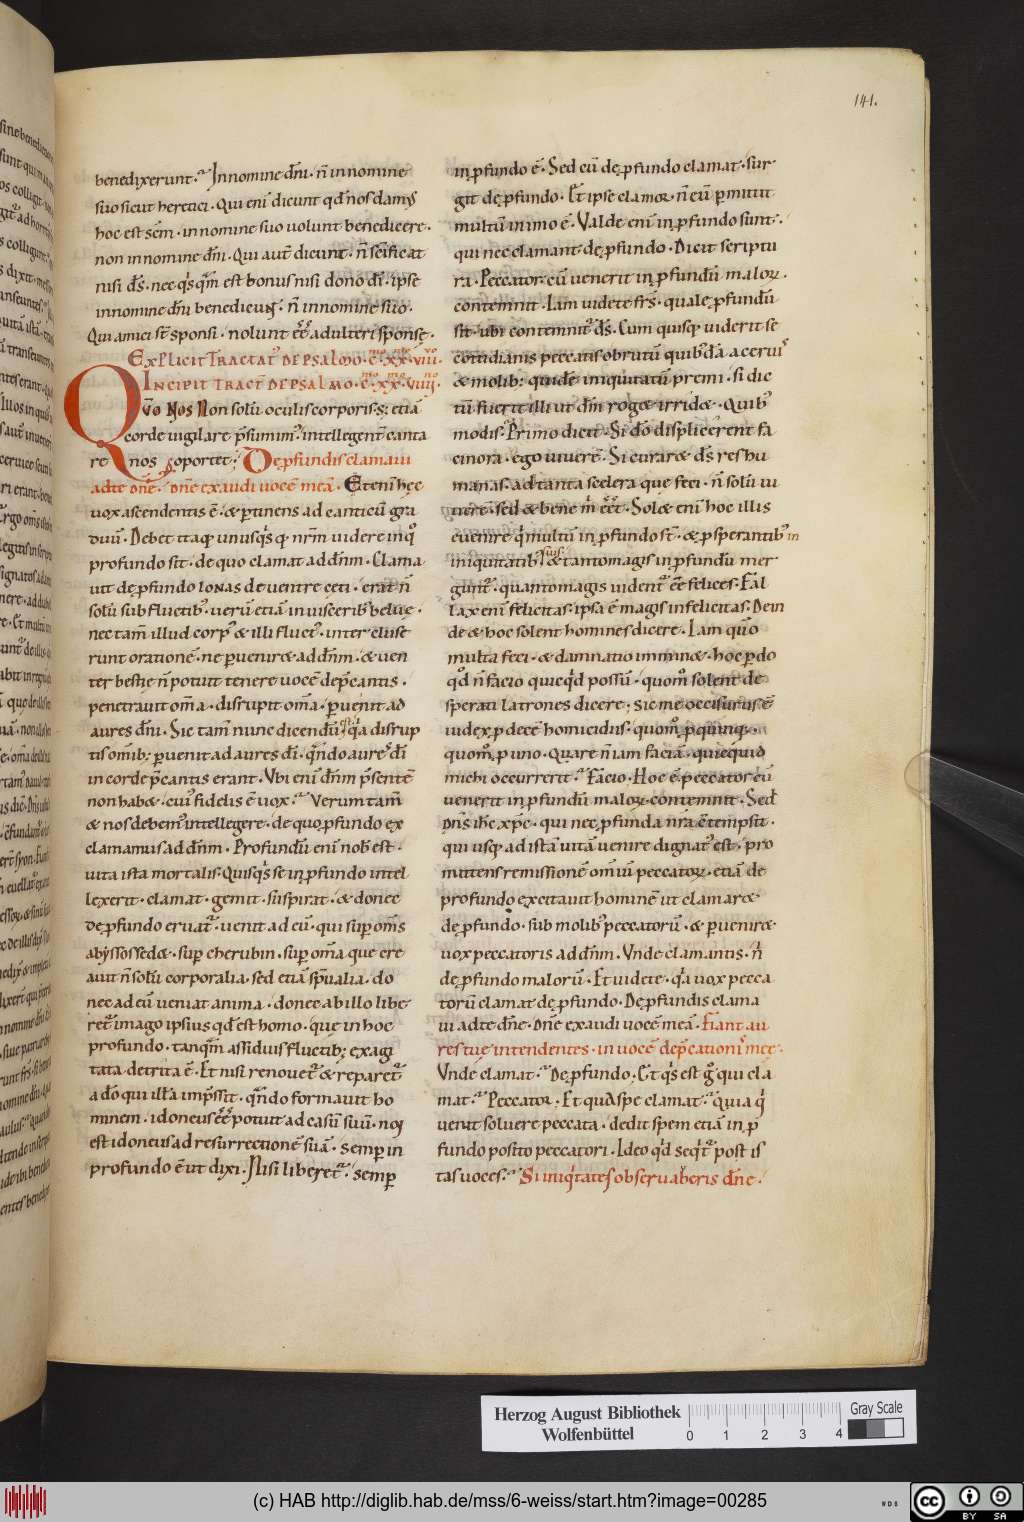 141.
benedixerunt. Innomine dñi. ñ innomine
suo sicut heretici. Qui eni dicunt qd ños damꝰ
hoc est scm. in nomine suo uolunt benedicere.
non innomine dñi. Qui aut dicunt. ñ scificat
nisi ds. nec qs qm est bonus nisi dono di. ipse
innomine dñi benedicuꝰ. ñ innomine suo.
Qui amici st sponsi. nolunt ee adulteri sponse.
Explicit Tractat de psalmo. c. xx. viii.
Incipit tract de psalmo. c. xx. viiij.
Quo nos Non solu oculis corporis. s; etia
corde uigilare psumim. intellegent canta
re nos oportet; De pfundis clamaui
adte dne. dne exaudi uoce mea. Eteni hec
uox ascendentis e. & ptinens ad canticu gra
duu. Debet itaq unusqs q nrm uidere inq
profundo sit. de quo clamat ad dnm. Clama
uit de pfundo ionas de uentre ceti. erat ñ
solu sub fluctib. ueru etia in uiscerib belue.
nec tam illud corp & illi fluct. inter cluse
runt oratione. ne puenir& ad dnm. & uen
ter bestie ñ potuit tenere uoce depcantis.
penetrauit oma. disrupit oma. puenit ad
aures dñi. Sic tam nunc dicendu e qa disrup
tis omib; puenit ad aures di. qndo aure di
in corde pcantis erant. Vbi eni dnm psente
non hab&. cui fidelis e uox. Verum tam
& nos debem intellegere. de quo pfundo ex
clamamus ad dnm. Profundu eni nob est.
uita ista mortalis. Quisqs se in pfundo intel
lexerit. clamat. gemit. suspirat. & donec
de pfundo eruat. uenit ad eu. qui sup oms
abyssos sed&. sup cherubin. sup oma que cre
auit ñ solu corporalia. sed etia spualia. do
nec ad eu ueniat anima. donec ab illo libe
ret imago ipsius qd est homo. que in hoc
profundo. tanqm assiduis fluctib; exagi
tata detrita e. Et nisi renouet & reparet
a do qui illa impssit. qndo formauit ho
minem. idoneus ee potuit ad casu suu. noj
est idoneus ad resurrectione sua. semp in
profundo e ut dixi. Nisi liberet. semp
in pfundo e. Sed cu de pfundo clamat. sur
git de pfundo. Et ipse clamor ñ eu pmittit
multu in imo e. Valde eni in pfundo sunt.
qui nec clamant de pfundo. Dicit scriptu
ra. Peccator cu uenerit in pfundu malor.
contemnit. Iam uidete frs. quale pfundu
sit. ubi contemnit ds. Cum quisq uiderit se
cotidianis peccatis obrutu quibda aceruis
& molib; quide iniquitatu premi. si dic
tu fuerit illi ut dm rog& irrid&. Quib
modis. Primo dicit. Si do displicerent fa
cinora. ego uiuere. Si curar& ds res hu
manas. ad tanta scelera que feci. ñ solu ui
uere. sed & bene m eet. Sol& eni hoc illis
euenire q multu in pfundo st. & psperantib in
iniquitatib suis & tanto magis in pfundu mer
gunt. quanto magis uident ee felices. Fal
lax eni felicitas. ipsa e magis infelicitas. Dein
de & hoc solent homines dicere. Iam quo
multa feci. & damnatio immin&. hoc pdo
qd ñ facio quicqd possu. quom solent de
sperati latrones dicere; sic me occisurus e
iudex p dece homicidiis. quom p quinq.
quom p uno. Quare ñ iam facia. quicquid
michi occurrerit. Facio. Hoc e. peccator cu
uenerit in pfundu malor. contemnit. Sed
Dns ihc xpc. qui nec pfunda nra etempsit.
qui usq ad ista uita uenire dignat est. pro
mittens remissione omiu peccator. etia de
profundo excitauit homine ut clamar&
de pfundo. sub molib peccatoru. & puenir&
uox peccatoris ad dnm. Vnde clamantis. ñ
de pfundo maloru. Et uidete. qa uox pecca
toru clamat de pfundo. De pfundis clama
ui adte dne. dne exaudi uoce mea. Fiant au
res tue intendentes. in uoce depcationi mee.
Vnde clamat. De pfundo; Et qs est g qui cla
mat. Peccator. Et qua spe clamat. Quia q
uenit soluere peccata. dedit spem etia in p
fundo posito peccatori. Ideo qd seqt post is
tas uoces. Si iniqtates obseruaberis dne.
Herzog August Bibliothek
Wolfenbüttel
0 1 2 3 4
Gray Scale
(c) HAB http://diglib.hab.de/mss/6-weiss/start.htm?image=00285
cc BY SA